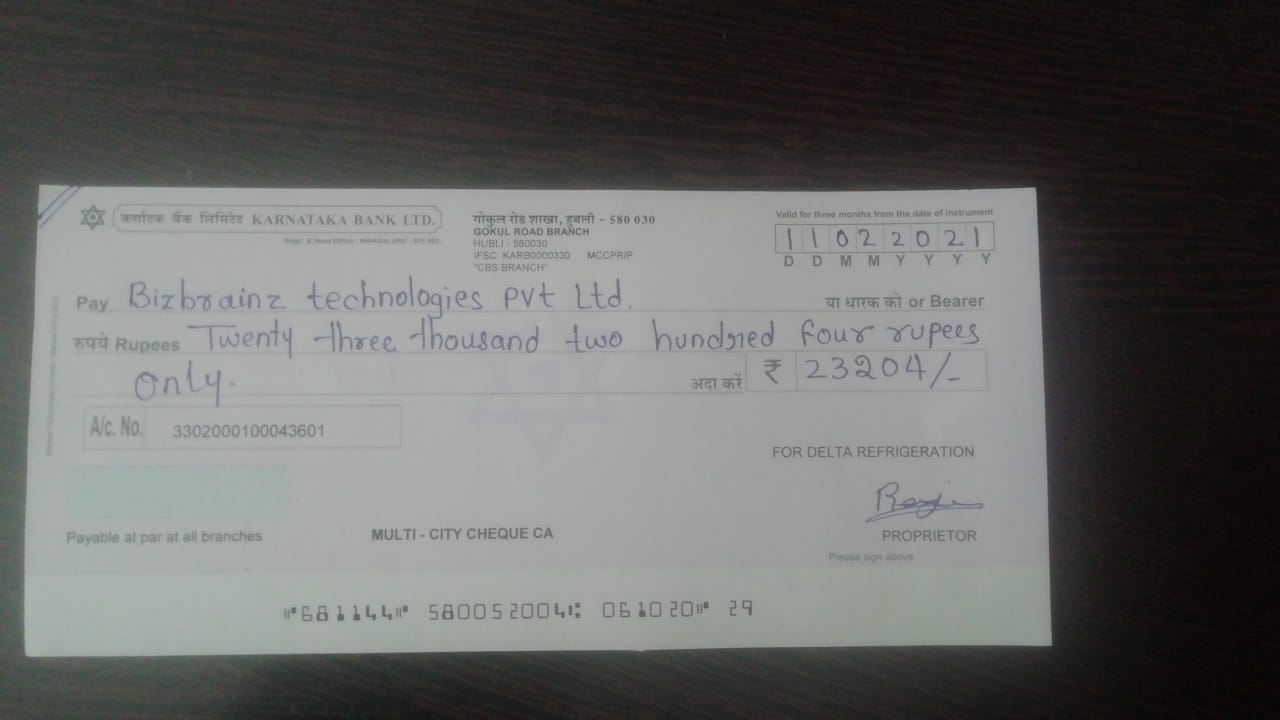 कर्णाटक बैंक लिमिटेड KARNATAKA BANK LTD.
Regd. & Head Office : MANGALURU - 575 002.
गोकुल रोड शाखा, हूबली - 580 030
GOKUL ROAD BRANCH
HUBLI - 580030
IFSC: KARB0000330 MCCPR/P
"CBS BRANCH"
Valid for three months from the date of instrument
11022021
D D M M Y Y Y Y
Pay Bizbrainz technologies pvt Ltd. या धारक को or Bearer
रुपये Rupees Twenty three thousand two hundred four rupees
Only. अदा करें ₹ 23204/-
A/c. No. 3302000100043601
FOR DELTA REFRIGERATION
Payable at par at all branches
MULTI - CITY CHEQUE CA
PROPRIETOR
Please sign above
⑈681144⑈ 580052004⑆ 061020⑈ 29